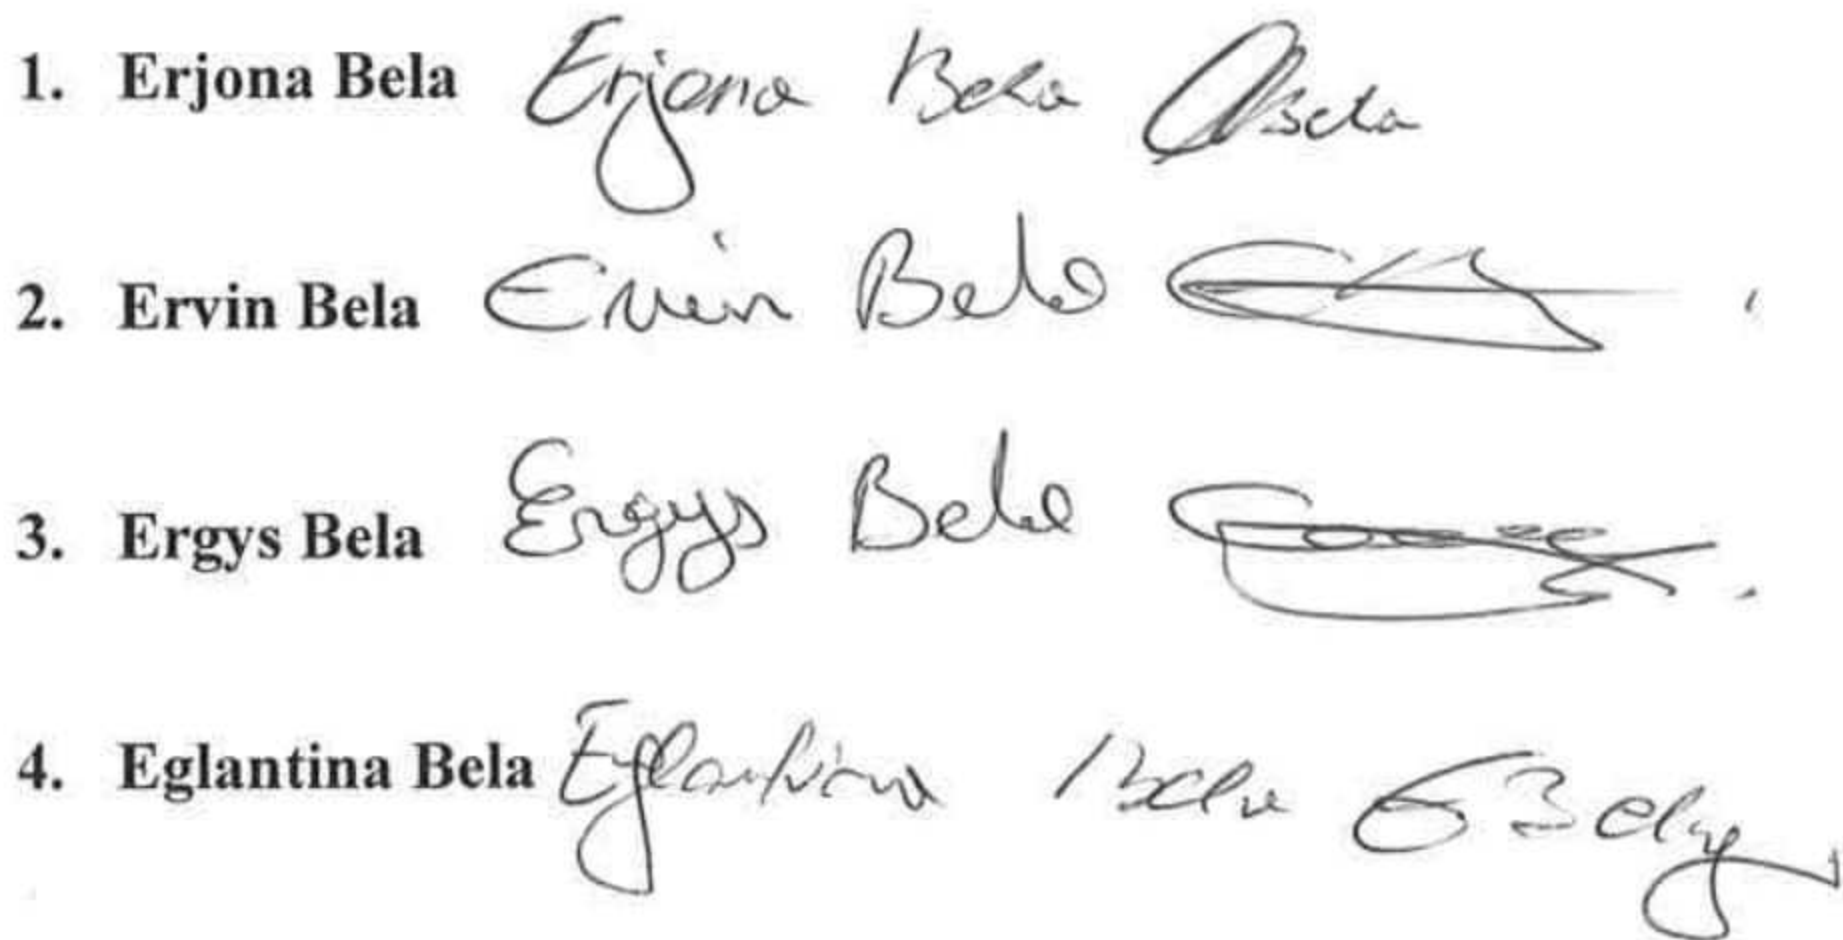 1. Erjona Bela Erjona Bela Bela
2. Ervin Bela Ervin Bela
3. Ergys Bela Ergys Bela
4. Eglantina Bela Eglantina Bela EBela